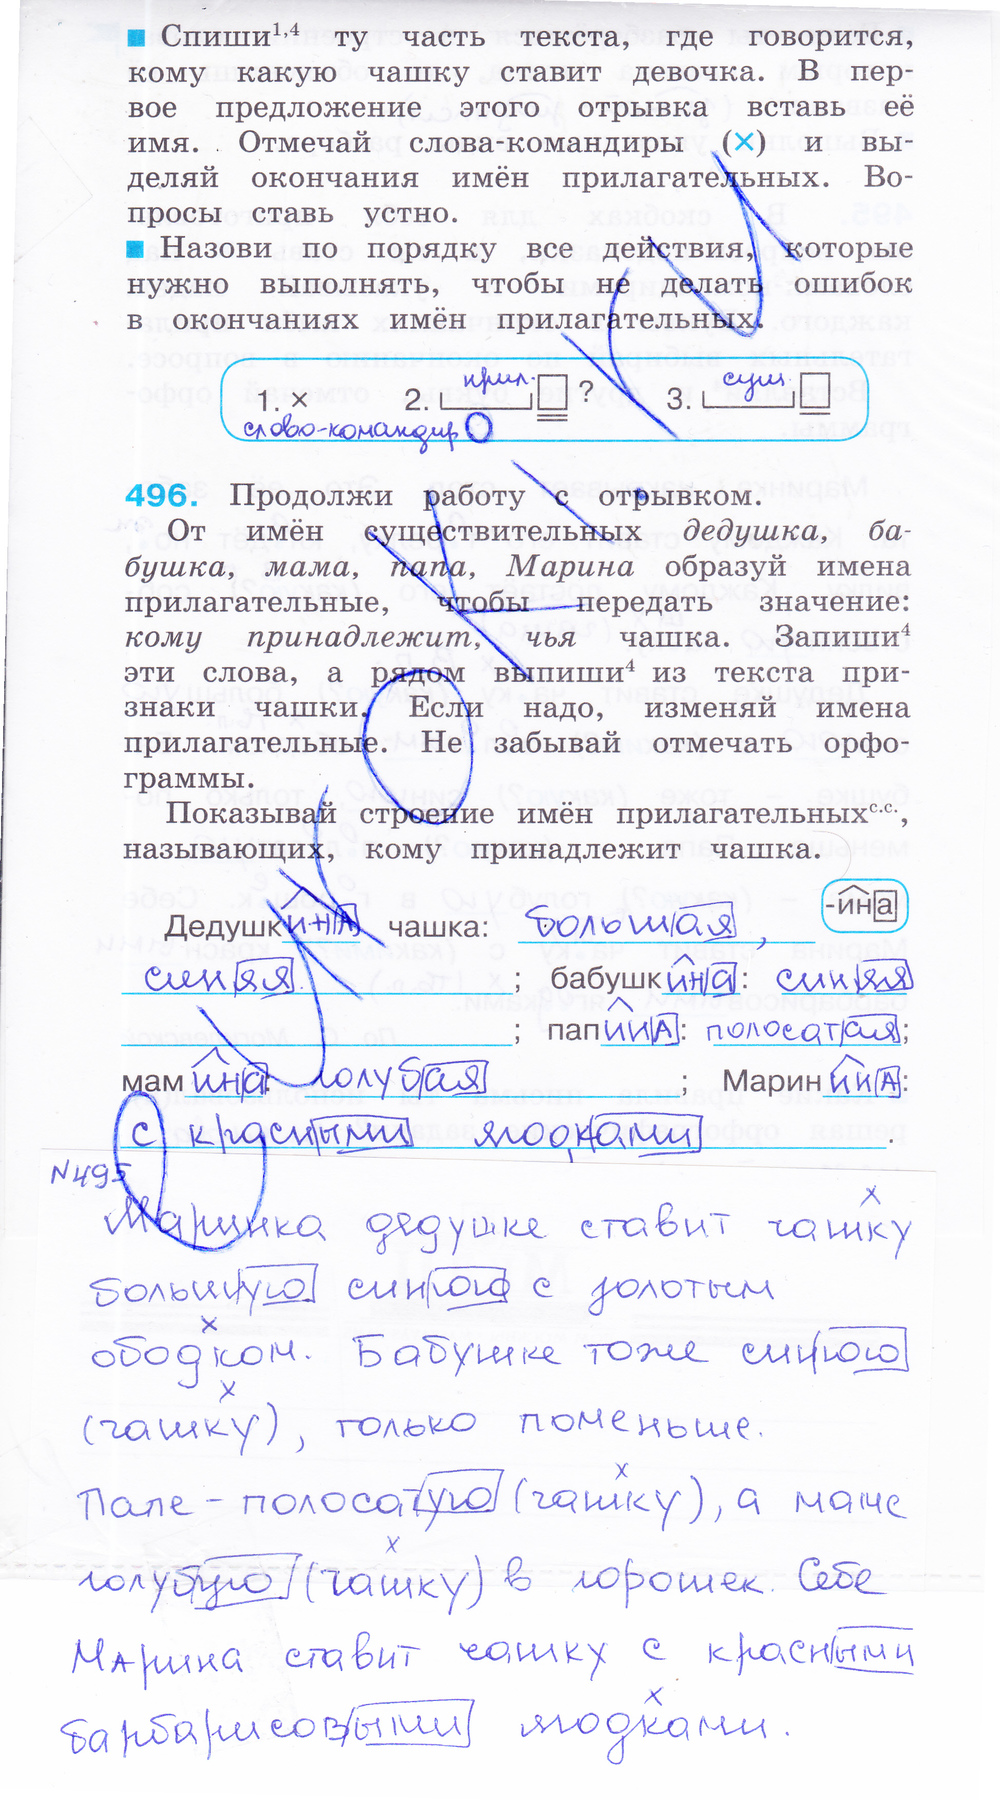 Спиши1,4 ту часть текста, где говорится,
кому какую чашку ставит девочка. В пер-
вое предложение этого отрывка вставь её
имя. Отмечай слова-командиры (×) и вы-
деляй окончания имён прилагательных. Во-
просы ставь устно.
Назови по порядку все действия, которые
нужно выполнять, чтобы не делать ошибок
в окончаниях имён прилагательных.
прил. сущ.
1. × 2. ? 3.
слово-командир
496. Продолжи работу с отрывком.
От имён существительных дедушка, ба-
бушка, мама, папа, Марина образуй имена
прилагательные, чтобы передать значение:
кому принадлежит, чья чашка. Запиши4
эти слова, а рядом выпиши4 из текста при-
знаки чашки. Если надо, изменяй имена
прилагательные. Не забывай отмечать орфо-
граммы.
Показывай строение имён прилагательныхс.с.,
называющих, кому принадлежит чашка.
-ина
Дедушкина чашка: большая,
синяя ; бабушкина: синяя
; папина: полосатая;
мамина: голубая ; Марин ина:
с красными ягодками .
№495
Маринка дедушке ставит чашку
большую синюю с золотым
ободком. Бабушке тоже синюю
(чашку), только поменьше.
Папе - полосатую (чашку), а маме
голубую (чашку) в горошек. Себе
Марина ставит чашку с красными
барбарисовыми ягодками.